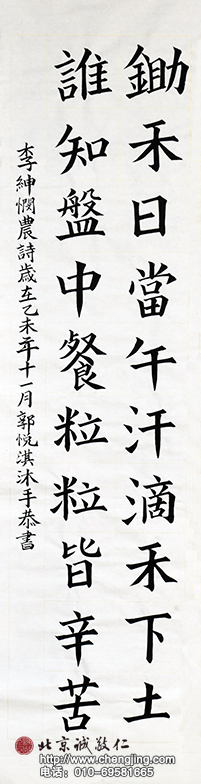 鋤禾日當午汗滴禾下土
誰知盤中餐粒粒皆辛苦
李紳憫農詩歲在乙未年十一月郭悦淇沐手恭書
北京诚敬仁
http://chongjing.com
电话：010-69581665